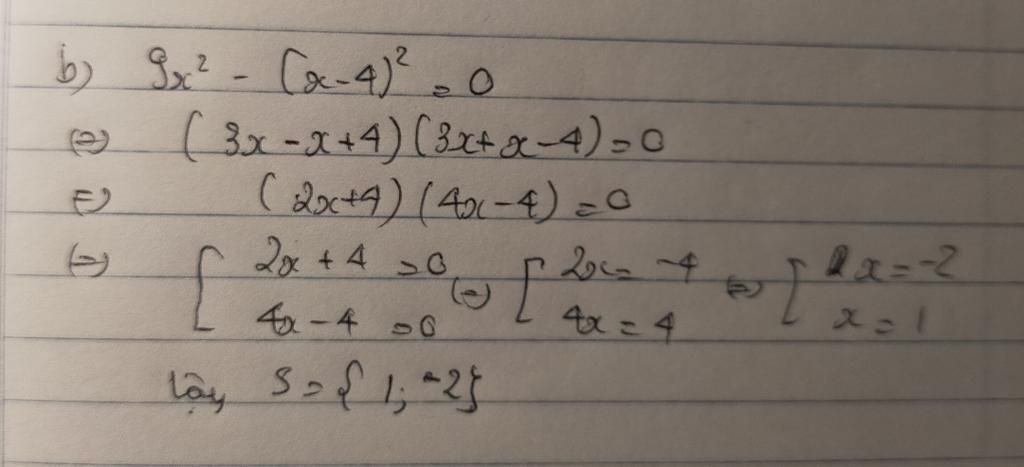 b) 9x² - (x-4)² = 0
(=) (3x-x+4)(3x+x-4)=0
(=) (2x+4)(4x-4)=0
(=) [ 2x+4=0 (=) [ 2x=-4 (=) [ x=-2
4x-4=0 4x=4 x=1
Vậy S={1;-2}